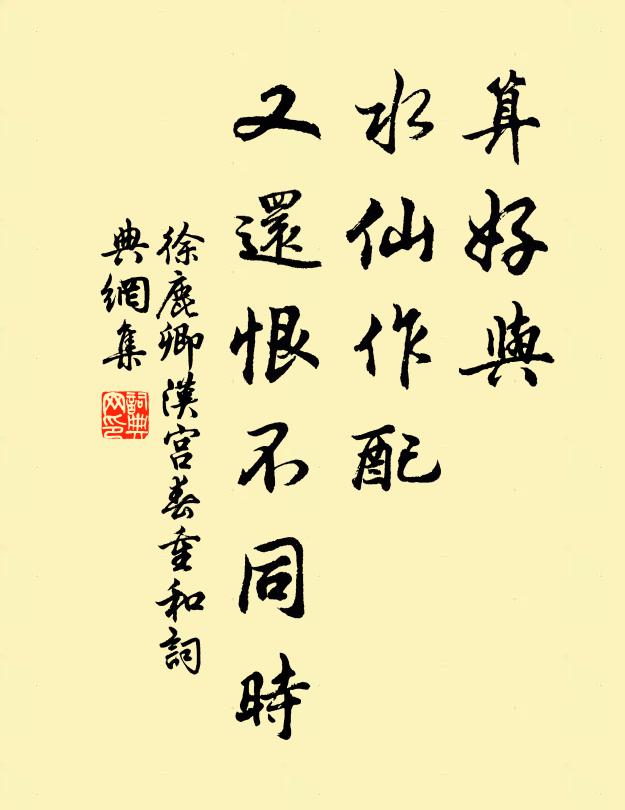 算好與
水仙作配
又還恨不同時
徐鹿卿漢宮春重和詞
典網集
詞典網印